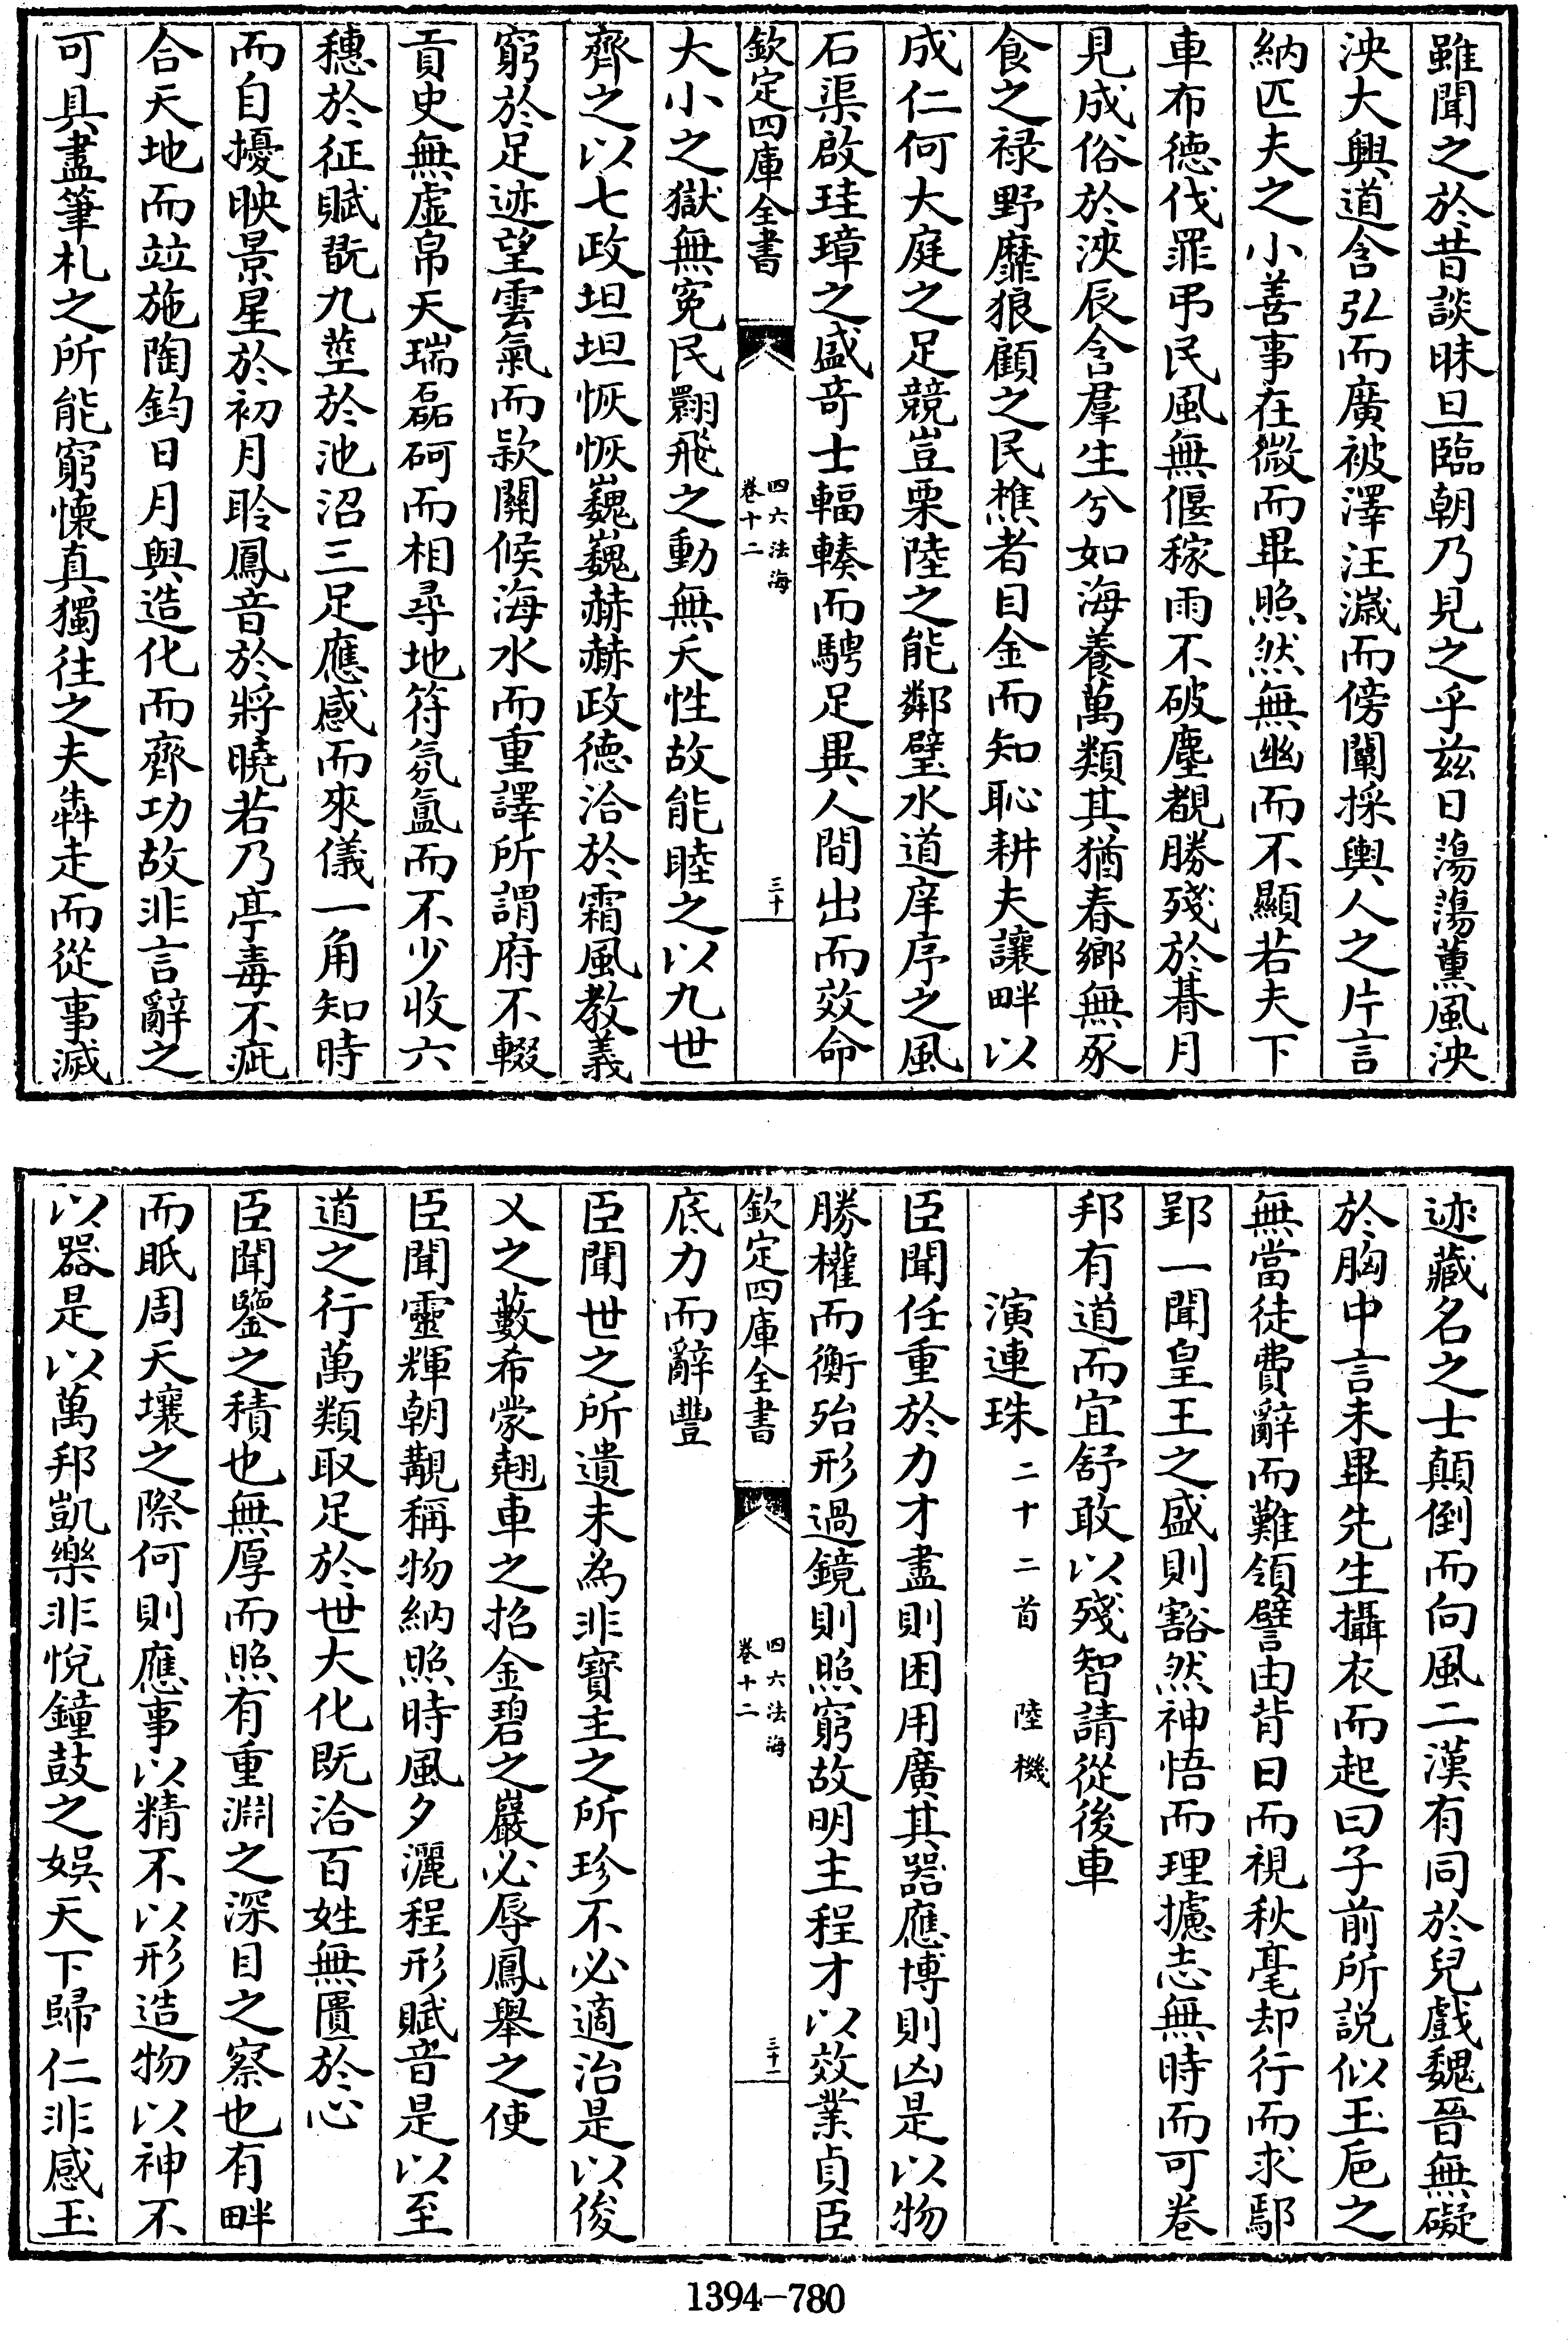 雖聞之於昔談昧旦臨朝乃見之乎兹日蕩蕩薰風泱
泱大興道含弘而廣被澤汪濊而傍闡採輿人之片言
納匹夫之小善事在微而畢照然無幽而不顯若夫下
車布德伐罪弔民風無偃稼雨不破塵覩勝殘於朞月
見成俗於浹辰含羣生兮如海養萬類其猶春鄉無豕
食之禄野靡狼顧之民樵者目金而知恥耕夫讓畔以
成仁何大庭之足競豈栗陸之能鄰璧水道庠序之風
石渠啟珪璋之盛奇士輻輳而騁足異人間出而效命
欽定四庫全書
四六法海
卷十二
三十
大小之獄無寃民翾飛之動無夭性故能睦之以九世
齊之以七政坦坦恢恢巍巍赫赫政德洽於霜風教義
窮於足迹望雲氣而款關候海水而重譯所謂府不輟
貢史無虛帛天瑞磊砢而相尋地符氛氲而不少收六
穗於征賦翫九莖於池沼三足應感而來儀一角知時
而自擾映景星於初月聆鳳音於將曉若乃亭毒不疵
合天地而竝施陶鈞日月與造化而齊功故非言辭之
可具盡筆札之所能窮懷真獨往之夫犇走而從事滅
迹藏名之士顛倒而向風二漢有同於兒戲魏晉無礙
於胸中言未畢先生攝衣而起曰子前所説似玉巵之
無當徒費辭而難領譬由背日而視秋毫却行而求鄢
郢一聞皇王之盛則豁然神悟而理攄志無時而可卷
邦有道而宜舒敢以殘智請從後車
演連珠 二十二首 陸機
臣聞任重於力才盡則困用廣其器應博則凶是以物
勝權而衡殆形過鏡則照窮故明主程才以效業貞臣
欽定四庫全書
四六法海
卷十二
三十一
底力而辭豐
臣聞世之所遺未為非寳主之所珍不必適治是以俊
乂之藪希蒙翹車之招金碧之巖必辱鳳舉之使
臣聞靈輝朝覯稱物納照時風夕灑程形賦音是以至
道之行萬類取足於世大化既洽百姓無匱於心
臣聞鑒之積也無厚而照有重淵之深目之察也有畔
而眡周天壤之際何則應事以精不以形造物以神不
以器是以萬邦凱樂非悅鐘鼓之娛天下歸仁非感玉
1394-780